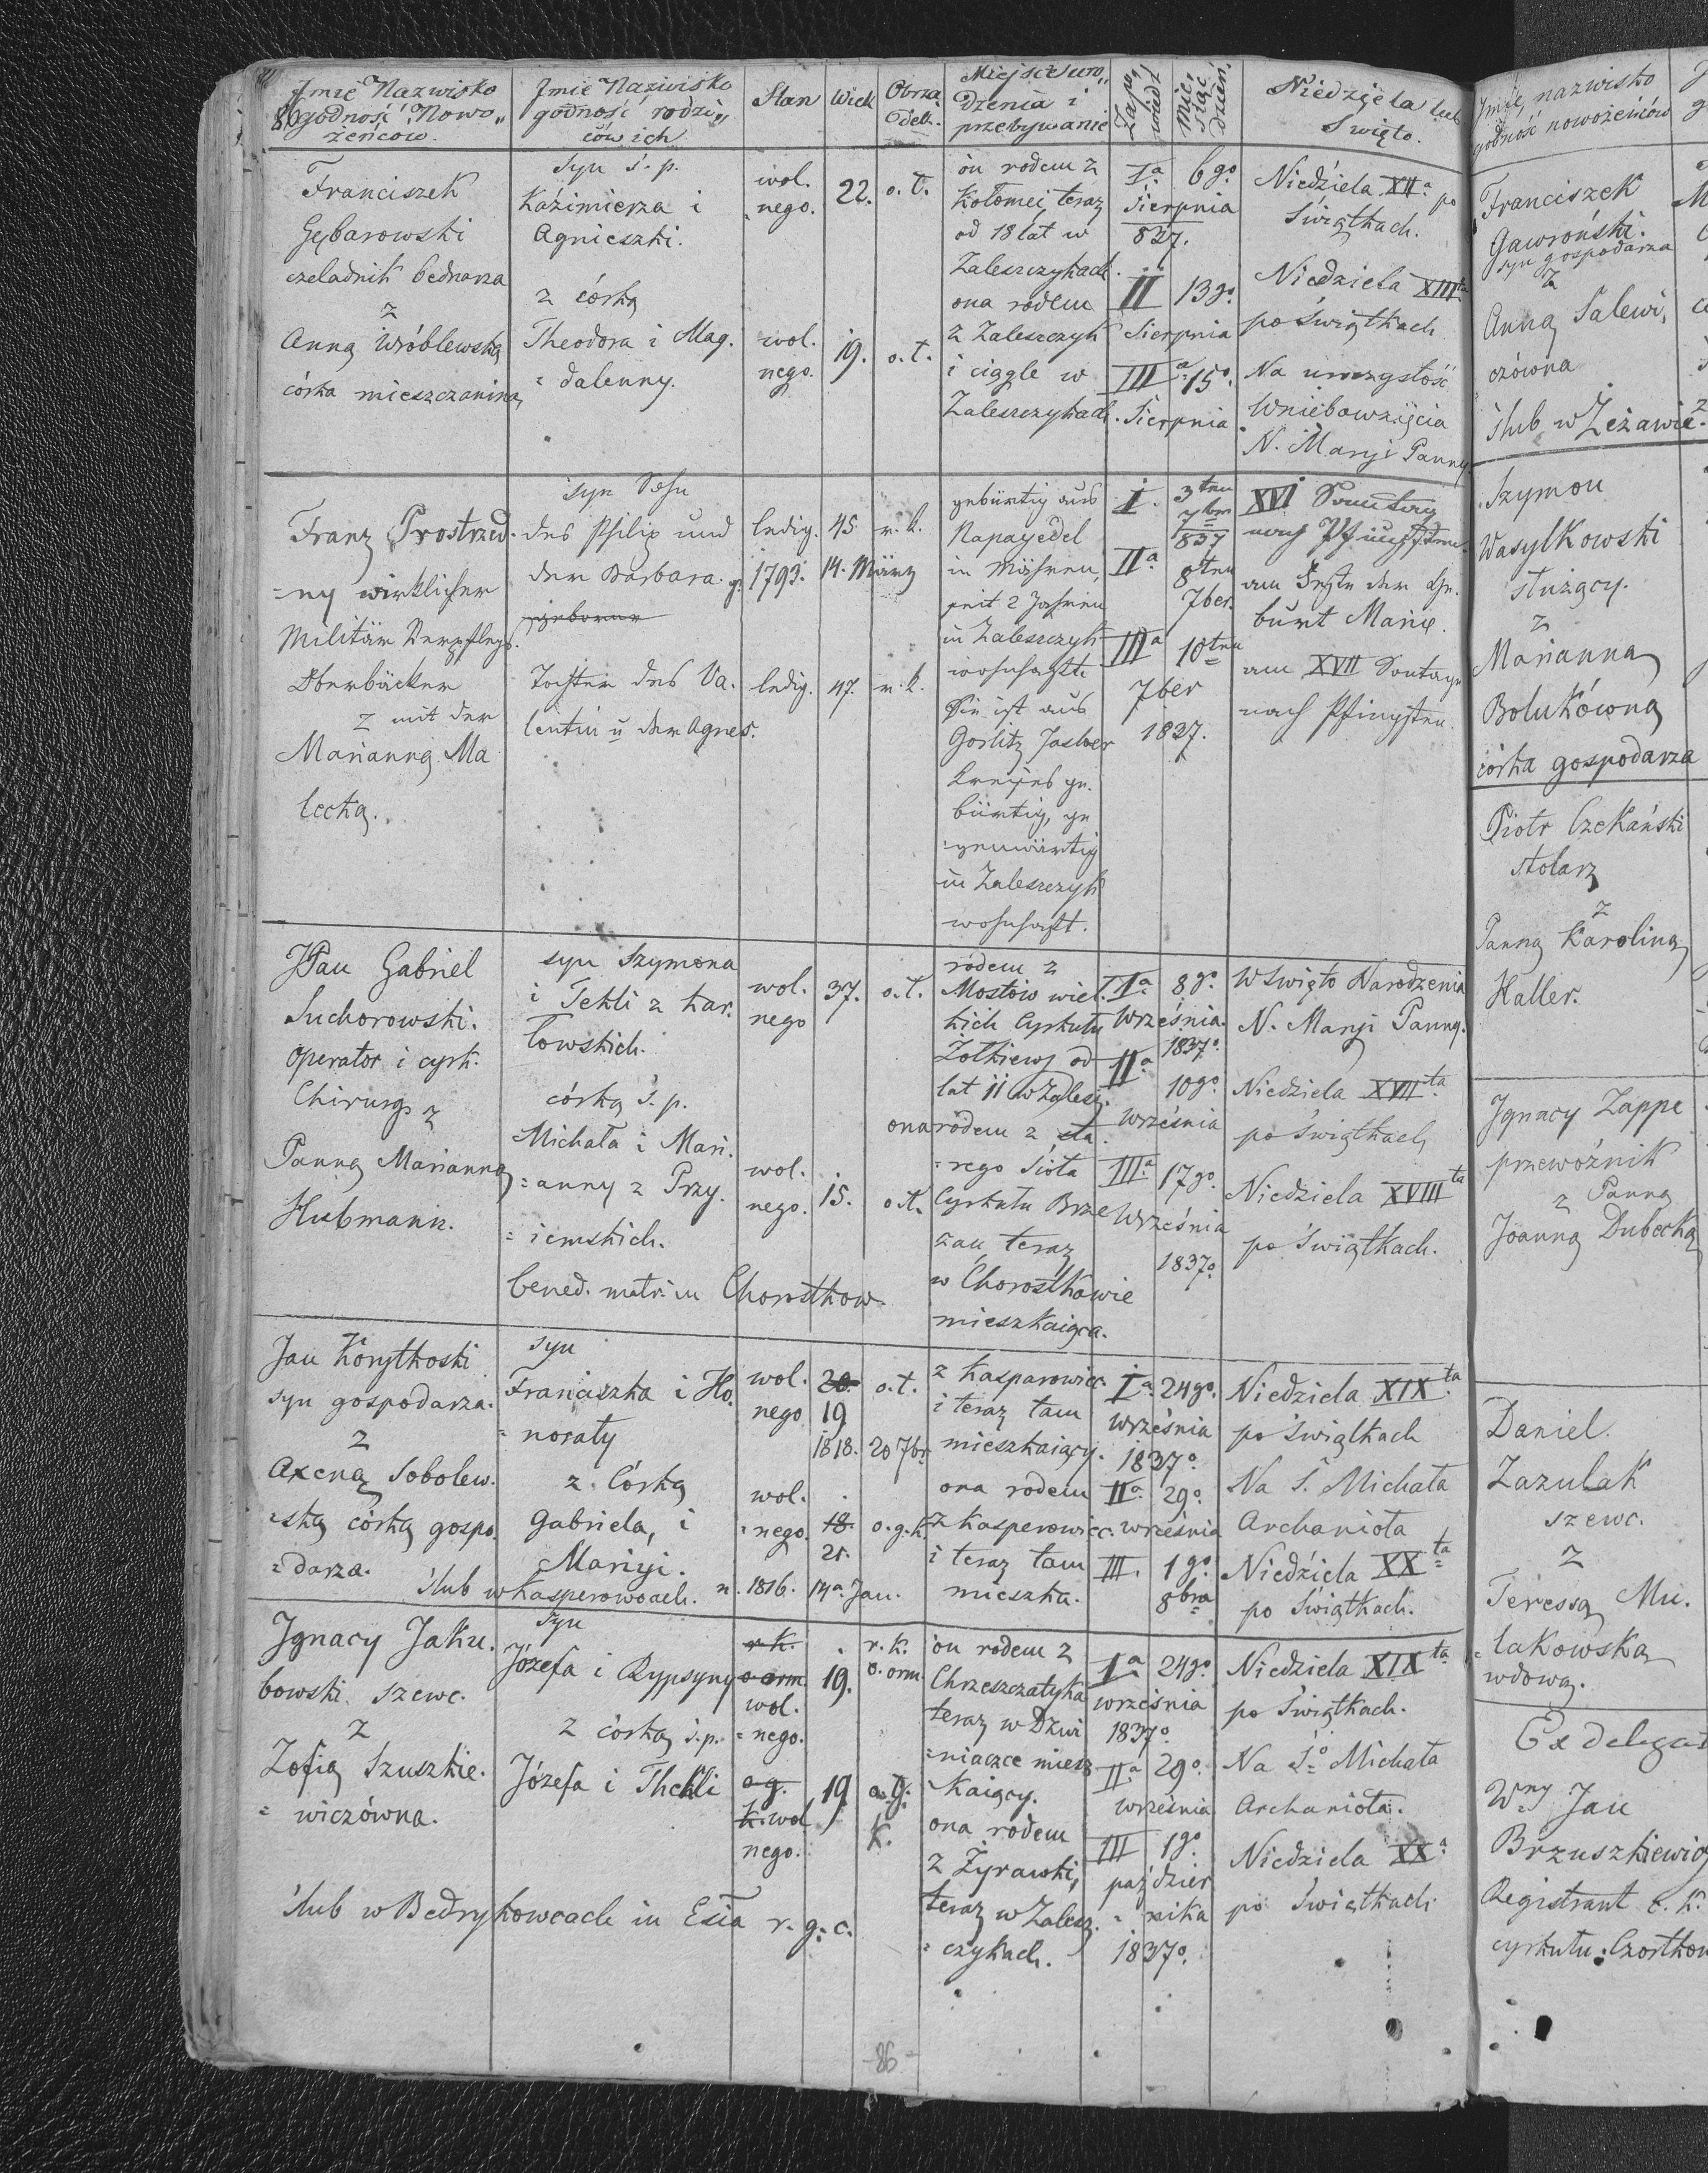 86
Jmie Nazwisko
godność Nowo„
żeńcow.
Jmie Nazwisko
godność rodzi„
ców ich
Stan
Wiek
Obrzą
dek.
Miejsce uro„
dzenia i
przebywanie
Zapo„
wiedź
Mie„
siąc
dzień.
Niedziela lub
Święto.
Franciszek
Gębarowski
czeladnik bednarza
z
Anną Wróblewską
córka mieszczanina,
syn ś. p.
Kaźimierza i
Agnieszki.
z córką
Theodora i Mag.
= dalenny.
wol.
nego.
22.
o. ł.
wol.
nego.
19.
o. ł.
ón rodem z
Kołomei, teraz
od 18 lat w
Zaleszczykach.
ona rodem
z Zaleszczyk
i ciągle w
Zaleszczykach.
Iª 6go
Sierpnia
837.
II 13go
Sierpnia
IIIª 15º.
Sierpnia
Niedźiela XIIª po
Świątkach.
Niedziela XIIIta
po Świątkach
Na uroczystość
Wniebowzięcia
N. Maryi Panny.
Franz Prostrzed.
=ny wirklicher
Militär Verpflegs.
Oberbäcker
z mit der
Marianną Ma
lecką.
syn Sohn
des Philip und
der Barbara. g.
geborene
Tochter des Va.
lentin u der Agnes.
ledig. 45 r. k.
1793. 14. März
ledig. 47. r. k.
gebürtig aus
Napagedel
in Mähren,
seit 2 Jahren
in Zaleszczyk
wohnhaft.
Sie ist aus
Gorlitz Jasloer
Kreises ge.
bürtig, ge
genwärtig
in Zaleszczyk
wohnhaft.
I. 3ten
7ber
837
IIª 8ten
7ber.
IIIª 10ten
7ber
1837.
XVI Sonntag
nach Pfingsten.
am Feste der Ge.
burt Mariæ.
am XVII Sontage
nach Pfingsten.
JPan Gabriel
Suchorowski.
Operator i cyrk.
Chirurg z
Panną Marianną
Hubmann.
syn Szymona
i Tekli z Kar.
łowskich.
córką ś. p.
Michała i Mari.
=anny z Przy.
=iemskich.
bened. matr. in Chorostkow.
wol.
nego
37.
o. ł.
wol.
nego.
15.
o. ł.
rodem z
Mostów wiel.
kich Cyrkułu
Żółkiew, od
lat 11 w Zalesz.
ona rodem z sta.
=rego Sioła
Cyrkułu Brze
zan teraz
w Chorostkowie
mieszkaiąca.
Iª. 8go
Września.
1837º.
IIª 10go
września
IIIª 17go
Września
1837º
W Święto Narodzenia
N. Maryi Panny.
Niedziela XVIIta
po Świątkach
Niedziela XVIIIta
po Świątkach.
Jan Korytkoski
syn gospodarza.
z
Axeną Sobolew.
=ską córką gospo.
=darza.
ślub w Kasperowcach.
syn
Franciszka i Ho.
=noraty
z Córką
Gabriela, i
Maryi.
wol.
nego
20.
19
1818. 20 7br.
o. ł.
wol.
=nego.
18.
21.
o. g. k.
n. 1816. 14ª Jan.
z Kasparowiec
i teraz tam
mieszkaiący.
ona rodem
z Kasperowiec.
i teraz tam
mieszka.
Iª. 24go.
września
1837º.
IIª. 29º.
września
III. 1go
8bra
Niedziela XIXta
po Świątkach
Na Ś. Michała
Archanioła
Niedźiela XXta
po Świątkach.
Jgnacy Jaku.
bowski szewc.
z
Zofią Szuszkie.
=wiczówna.
syn
Józefa i Rypsyny
z córką ś. p.
Józefa i Thekli
r. k.
o orm.
wol.
=nego.
19.
r. k.
o. orm
o g.
k. wol
nego.
19
o. g.
k.
ón rodem z
Chrzeszczatyka
teraz w Dzwi
=niaczce miesz
kaiący.
ona rodem
z Żyrawki,
teraz w Zalesz.
=czykach.
Iª 24go
września
1837º
IIª 29º.
września
III 1go
paździer
=nika
1837º.
Niedziela XIXta
po Świątkach.
Na Śº Michała
Archanioła.
Niedziela XXª
po Świątkach
ślub w Bedrykowcach in Ecła r. g. c.
86
Jmie, nazwisko
godność nowożeńców
Franciszek
Gawroński.
syn gospodarza
z
Anną Salewi,
czówna
ślub w Zeżawie.
Szymon
Wasylkowski
służący.
z
Marianną
Bolukówną
córka gospodarza
Piotr Czekański
stolarz
z
Panną Karoliną
Haller.
Jgnacy Zappe
przewoźnik
z Panną
Joanną Dubecką
Daniel
Zazulak
szewc.
z
Teressą Mu.
=lakowską
wdową.
Ex delegat
Wny Jan
Brzuszkiewicz
Registrant C. K.
cyrkułu Czortkow